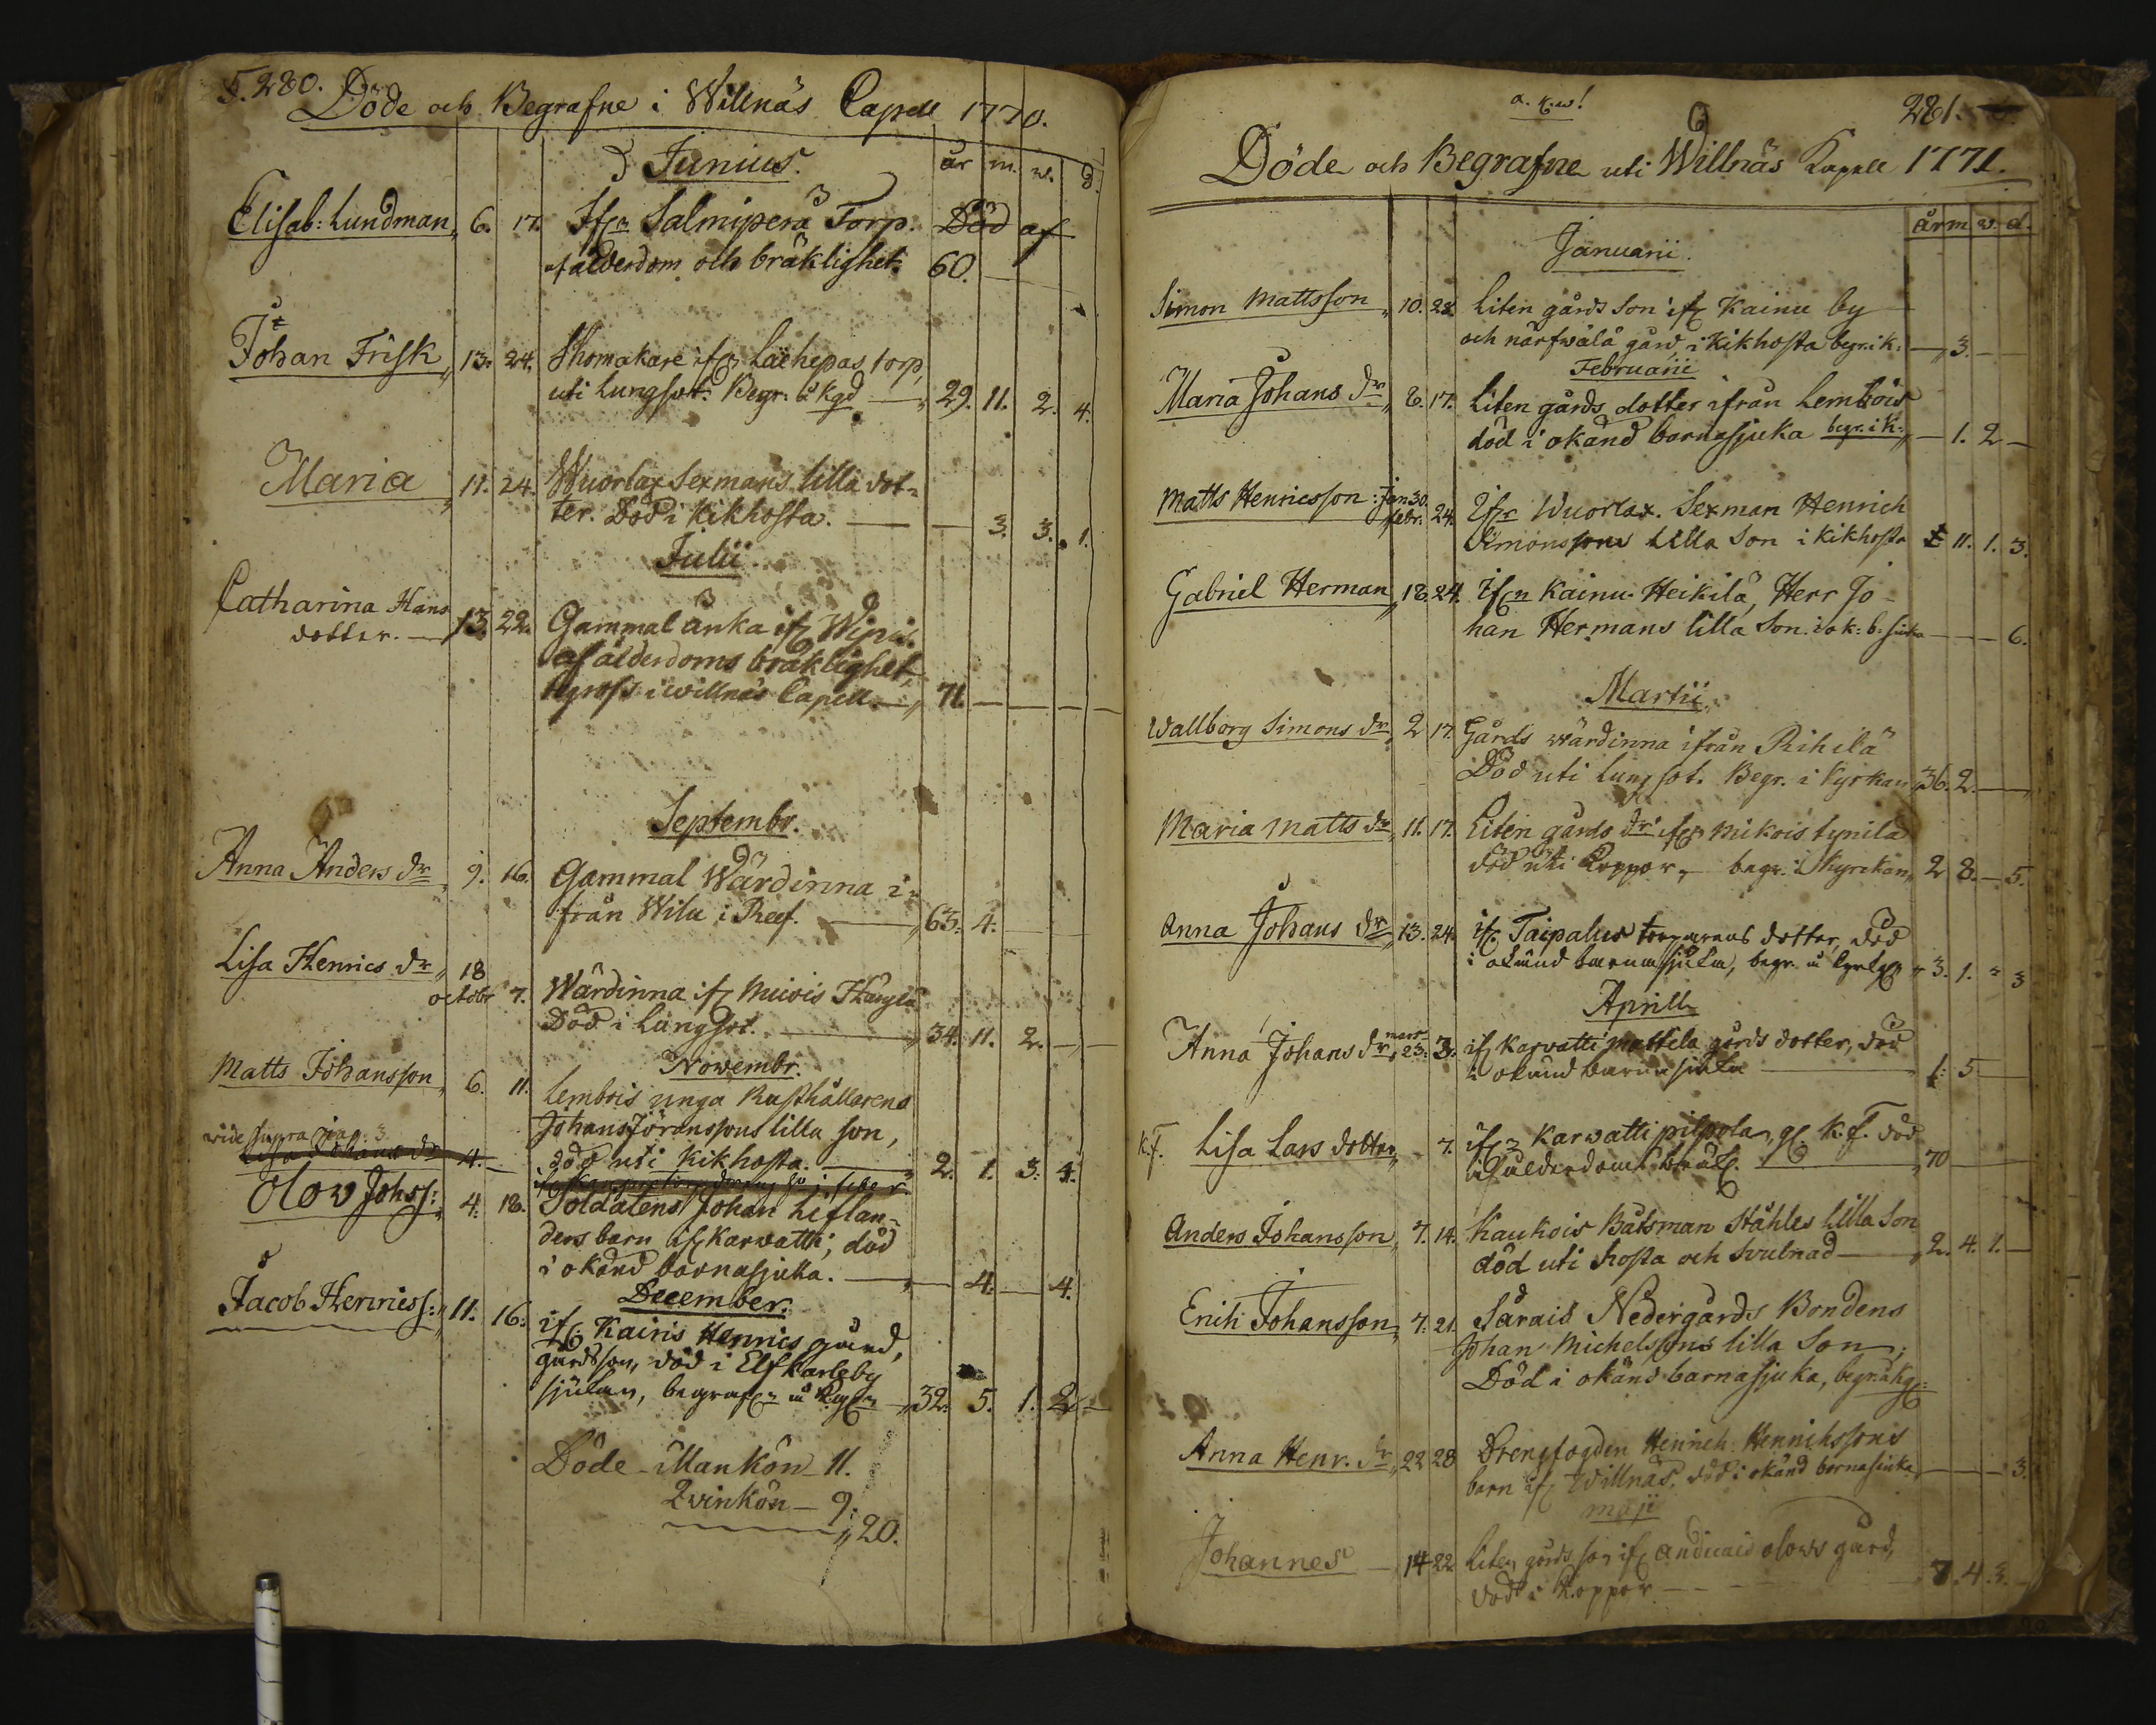 280.
Döde och Begrafne i Willnäs Capell 1770.
Junius. år m. w. d.
Elisab: Lundman, 6. 17. Ifrn Salmiperä Torp. Död af
af ålderdom och bräklighet. 60.
Johan Frisk, 13. 24. Skomakare ifrn Laehepas torp,
uti Lungsot. Begr. å Kgd — 29. 11. 2. 4.
Maria, 11. 24. Wuorlax Sexmans lilla dot-
ter. Död i Kikhosta. — 3. 3. 1.
Julii
Catharina Hans
dotter. — 13. 22. Gammal änka ifr
af ålderdoms bräklighet,
begrofs i willnäs Capell. — 71. — — —
Septembr.
Anna Anders dr 9. 16. Gammal Wärdinna i-
från Wilu i Res. — 63. 4.
Lisa Henrics dr, 18
octobr 7. Wärdinna ifr
Död i Lungsot. — 34. 11. 2. —
Novembr.
Matts Johansson, 6. 11. Lembois unga Rusthållarens
Johan Jöranssons lilla son,
död uti Kikhosta. — 2. 1. 3. 4.
wide supra pag: 3.
Lisa Johans dr 4. —
Olov Johss: 4. 18. Soldatens Johan Liflan-
ders barn ifr Karvatti, död
i okänd barnasjuka. — 4. — 4.
December.
Jacob Henricss: 11. 16. ifr. Kairis Henrics gård,
gårdsson, död i Elfkarleby
sjukan, begrafn å Kgn — 32. 5. 1. 2.
Döde Mankön 11.
Qvinkön — 9.
20.
a. K. w!
281.
Döde och Begrafne uti Willnäs Kapell 1771.
år m. w. d.
Januarii.
Simon Mattsson, 10. 28. Liten gårds Son ifr Kainu by
och närfwälä gård, i Kikhosta begr. i k: — 3. — —
Februarii
Maria Johans dr, 8. 17. Liten gårds dotter ifrån Lembois
död i okänd barnasjuka begr. i K: — 1. 2 —
Matts Henricsson: Jan 30.
febr. 24. Ifrn Wuorlax. Sexman Henrich
Simonssons Lilla Son i Kikhosta 11. 1. 3.
Gabriel Herman, 18. 24. Ifrn Kainu Heikilä, Herr Jo-
han Hermans lilla Son. i ok: b: siuka — — — 6.
Martii
Wallborg Simons dr, 2 17. Gårds wärdinna ifrån Rihilä
Död uti Lungsot. Begr. i Kyrkan, 36. 2. —
Maria Matts dr, 11. 17. Liten gårds dr ifrn Mikois tynilä
död uti Koppor, begr. i Kyrckan, 2 8. — 5.
Anna Johans dr, 13. 24. ifr. Taipalus torparens dotter, död
i okänd barnasjuka, begr. — 3. 1. — 3
Aprill
Anna Johans dr, mars
23. 3. ifr Karvatti mattila gårds dotter, död
i okänd barnasjuka — 1. 5 —
K.f. Lisa Lars dotter, 7. ifrn Karvatti pispola, K.f. död
— 70
Anders Johansson, 7. 14. Kaukois Båtsman Ståhles lilla Son
död uti hosta och svulnad — 2. 4. 1. —
Erich Johansson, 7. 21. Särais Nedergårds Bondens
Johan Michelssons lilla Son,
Död i okänd barnasjuka,
Anna Henr. dr, 22 28 Drengfogden Henrich Henrichssons
barn ifr Willnäs, död i okänd barnasiuka, — — — 3.
Maji
Johannes — 14 22 Liten gårds son ifr olovs gård,
död i Koppor — 7. 4. 3.